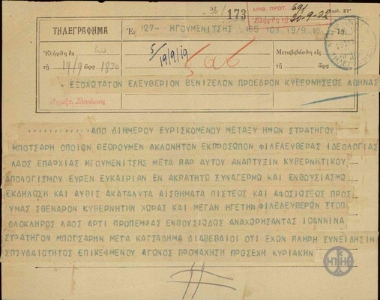 173
20-9-22
ΤΗΛΕΓΡΑΦΗΜΑ
Εξ 129- ΗΓΟΥΜΕΝΙΤΣΗΣ 155 10Χ 19/9
19/9 1830
5/19/9/19
ΕΞΟΧΩΤΑΤΟΝ ΕΛΕΥΘΕΡΙΟΝ ΒΕΝΙΖΕΛΟΝ ΠΡΟΕΔΡΟΝ ΚΥΒΕΡΝΗΣΕΩΣ ΑΘΗΝΑΣ
ΑΠΟ ΔΙΗΜΕΡΟΥ ΕΥΡΙΣΚΟΜΕΝΟΥ ΜΕΤΑΞΥ ΗΜΩΝ ΣΤΡΑΤΗΓΟΥ
ΜΠΟΤΣΑΡΗ ΟΠΟΙΟΝ ΘΕΟΡΟΥΜΕΝ ΑΚΛΟΝΗΤΟΝ ΕΚΠΡΟΣΩΠΟΝ ΦΙΛΕΛΕΥΘΕΡΑΣ ΙΔΕΟΛΟΓΙΑΣ
ΛΑΟΣ ΕΠΑΡΧΙΑΣ ΗΓΟΥΜΕΝΙΤΣΗΣ ΜΕΤΑ ΠΑΡ ΑΥΤΟΥ ΑΝΑΠΤΥΞΙΝ ΚΥΒΕΡΝΗΤΙΚΟΥ
ΑΠΟΛΟΓΙΣΜΟΥ ΕΥΡΕΝ ΕΥΚΑΙΡΙΑΝ ΕΝ ΑΚΡΑΤΗΤΟ ΣΥΝΑΓΕΡΜΟ ΚΑΙ ΕΝΘΟΥΣΙΑΣΜΟ
ΕΚΔΗΛΩΣΗ ΚΑΙ ΑΥΘΙΣ ΑΚΑΤΑΛΥΤΑ ΑΙΣΘΗΜΑΤΑ ΠΙΣΤΕΩΣ ΚΑΙ ΑΦΟΣΙΩΣΕΩΣ ΠΡΟΣ
ΥΜΑΣ ΣΘΕΝΑΡΟΝ ΚΥΒΕΡΝΗΤΙΝ ΧΩΡΑΣ ΚΑΙ ΜΕΓΑΝ ΗΓΕΤΗΝ ΦΙΛΕΛΕΥΘΕΡΩΝ ΣΤΟΠ
ΟΛΟΚΛΗΡΟΣ ΛΑΟΣ ΑΡΤΙ ΠΡΟΠΕΜΨΑΣ ΕΝΘΟΥΣΙΩΔΟΣ ΑΝΑΧΩΡΗΣΑΝΤΑ ΙΟΑΝΝΙΝΑ
ΣΤΡΑΤΗΓΟΝ ΜΠΟΤΣΑΡΗΝ ΜΕΤΑ ΔΙΑΒΕΒΑΙΟΙ ΟΤΙ ΕΧΩΝ ΠΛΗΡΗ ΣΥΝΕΙΔΗΣΙΝ
ΣΠΟΥΔΑΙΟΤΗΤΟΣ ΕΠΙΚΕΙΜΕΝΟΥ ΑΓΩΝΟΣ ΠΡΟΜΑΧΗΣΗ ΠΡΟΣΕΧΗ ΚΥΡΙΑΚΗΝ